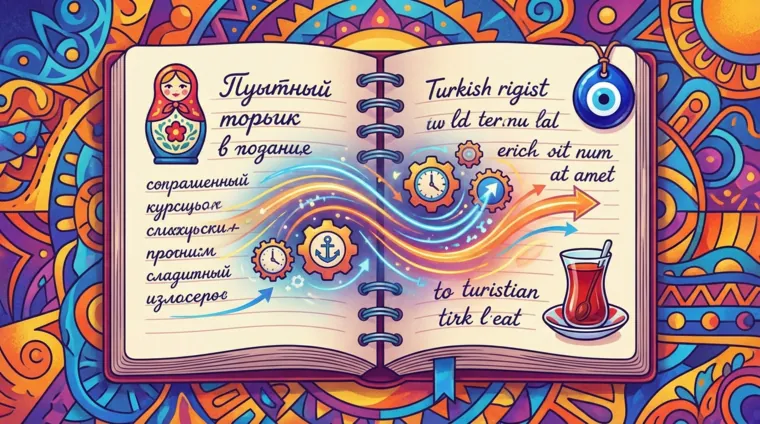 Пуытный
торыик
в подание
сопрашенный
курсицьох
слихуьски+
прогним
сладитный
излосерое
Turkish rigist
ıu ld ter:nu lal
erich sit num
at amet
to turistian
tirk l'eat